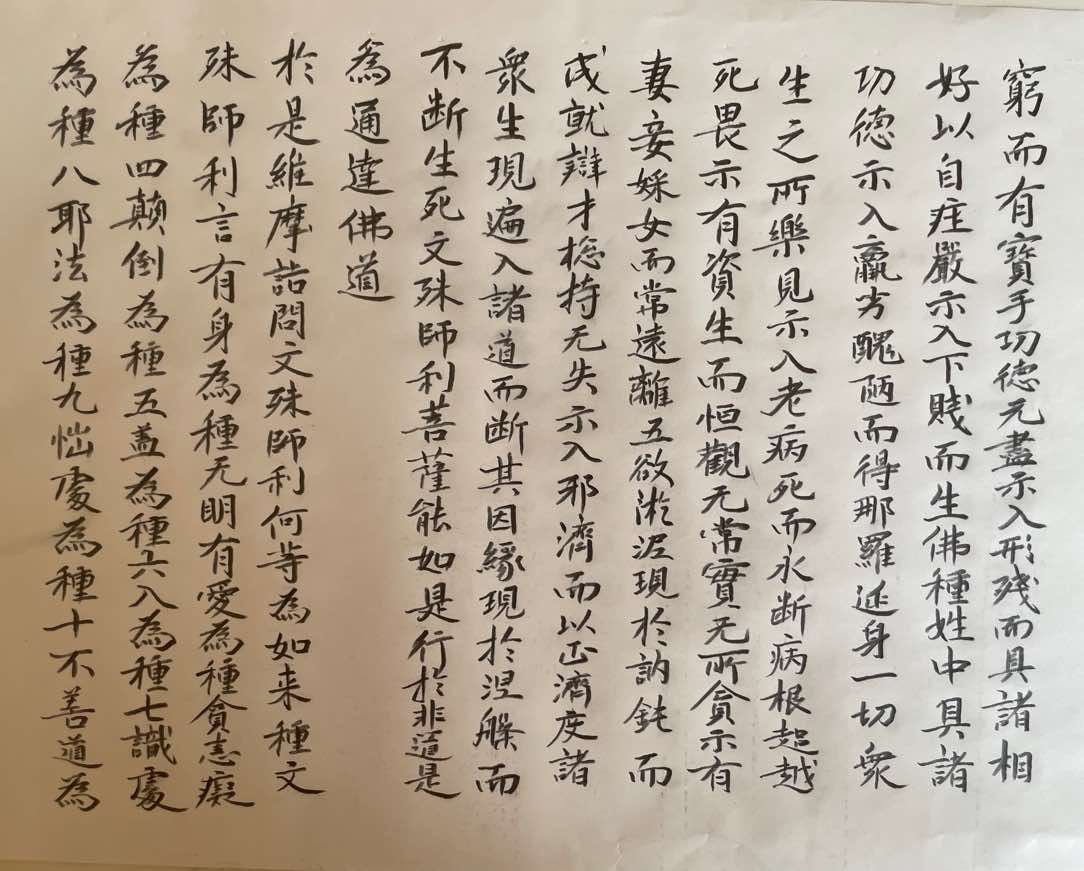 窮而有寶手功德无盡示入形殘而具諸相
好以自疰嚴示入下賤而生佛種姓中具諸
功德示入羸劣醜陋而得那羅延身一切衆
生之所樂見示入老病死而永断病根超越
死畏示有資生而恒觀无常實无所貪示有
妻妾婇女而常遠離五欲淤泥現於訥鈍而
成就辯才惣持无失示入邪濟而以正濟度諸
衆生現遍入諸道而断其因緣現於涅槃而
不断生死文殊師利菩薩能如是行於非道是
為通達佛道
於是維摩詰問文殊師利何等為如来種文
殊師利言有身為種无明有愛為種貪恚癡
為種四顛倒為種五盖為種六入為種七識處
為種八耶法為種九惱處為種十不善道為